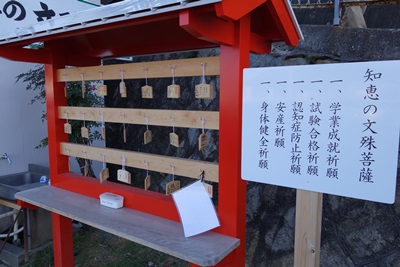 知恵の文殊菩薩
一、学業成就祈願
一、試験合格祈願
一、認知症防止祈願
一、安産祈願
一、身体健全祈願